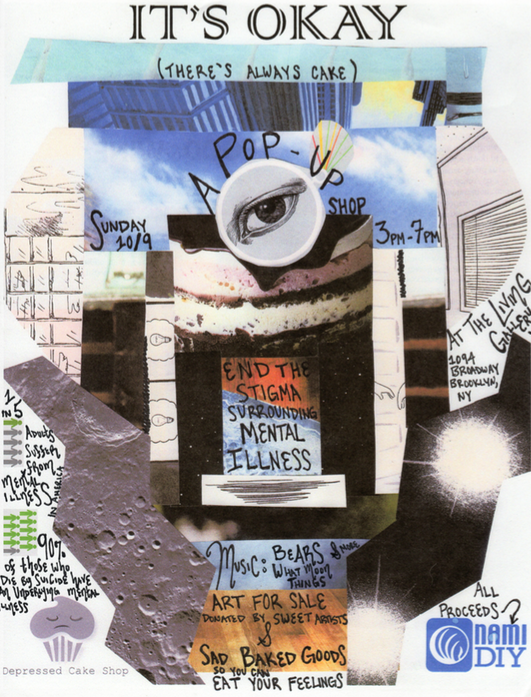 IT'S OKAY
(THERE'S ALWAYS CAKE)
A POP-UP
SHOP
SUNDAY
10/9
3PM-7PM
AT THE LIVING
GALLERY
1094
BROADWAY
BROOKLYN,
NY
END THE
STIGMA
SURROUNDING
MENTAL
ILLNESS
1
IN 5
ADULTS
SUFFER
FROM
MENTAL
ILLNESS
IN AMERICA
90%
OF THOSE WHO
DIE BY SUICIDE HAVE
AN UNDERLYING MENTAL
ILLNESS
Depressed Cake Shop
MUSIC: BEARS & MORE
WHAT MOON
THINGS
ART FOR SALE
DONATED BY SWEET ARTISTS
&
SAD BAKED GOODS
SO YOU CAN
EAT YOUR FEELINGS
ALL
PROCEEDS
NAMI
DIY